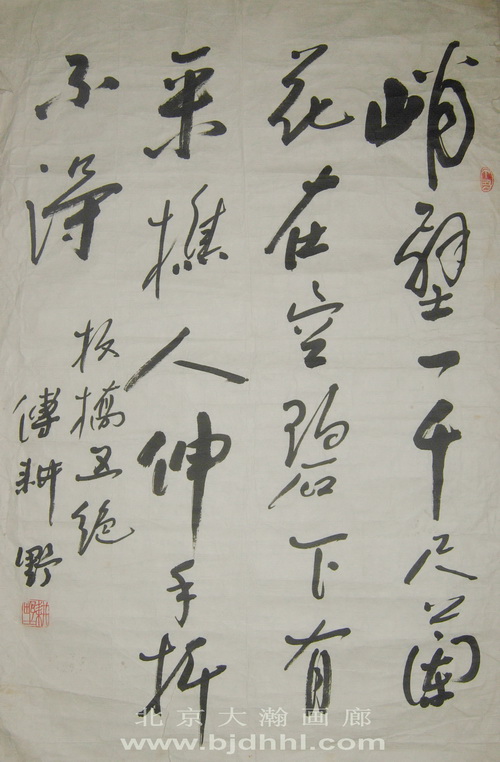 峭壁一千尺蘭
花在空碧下有
采樵人伸手折
不得
板橋五絕
傅耕野
北京大瀚画廊
www.bjdhhl.com